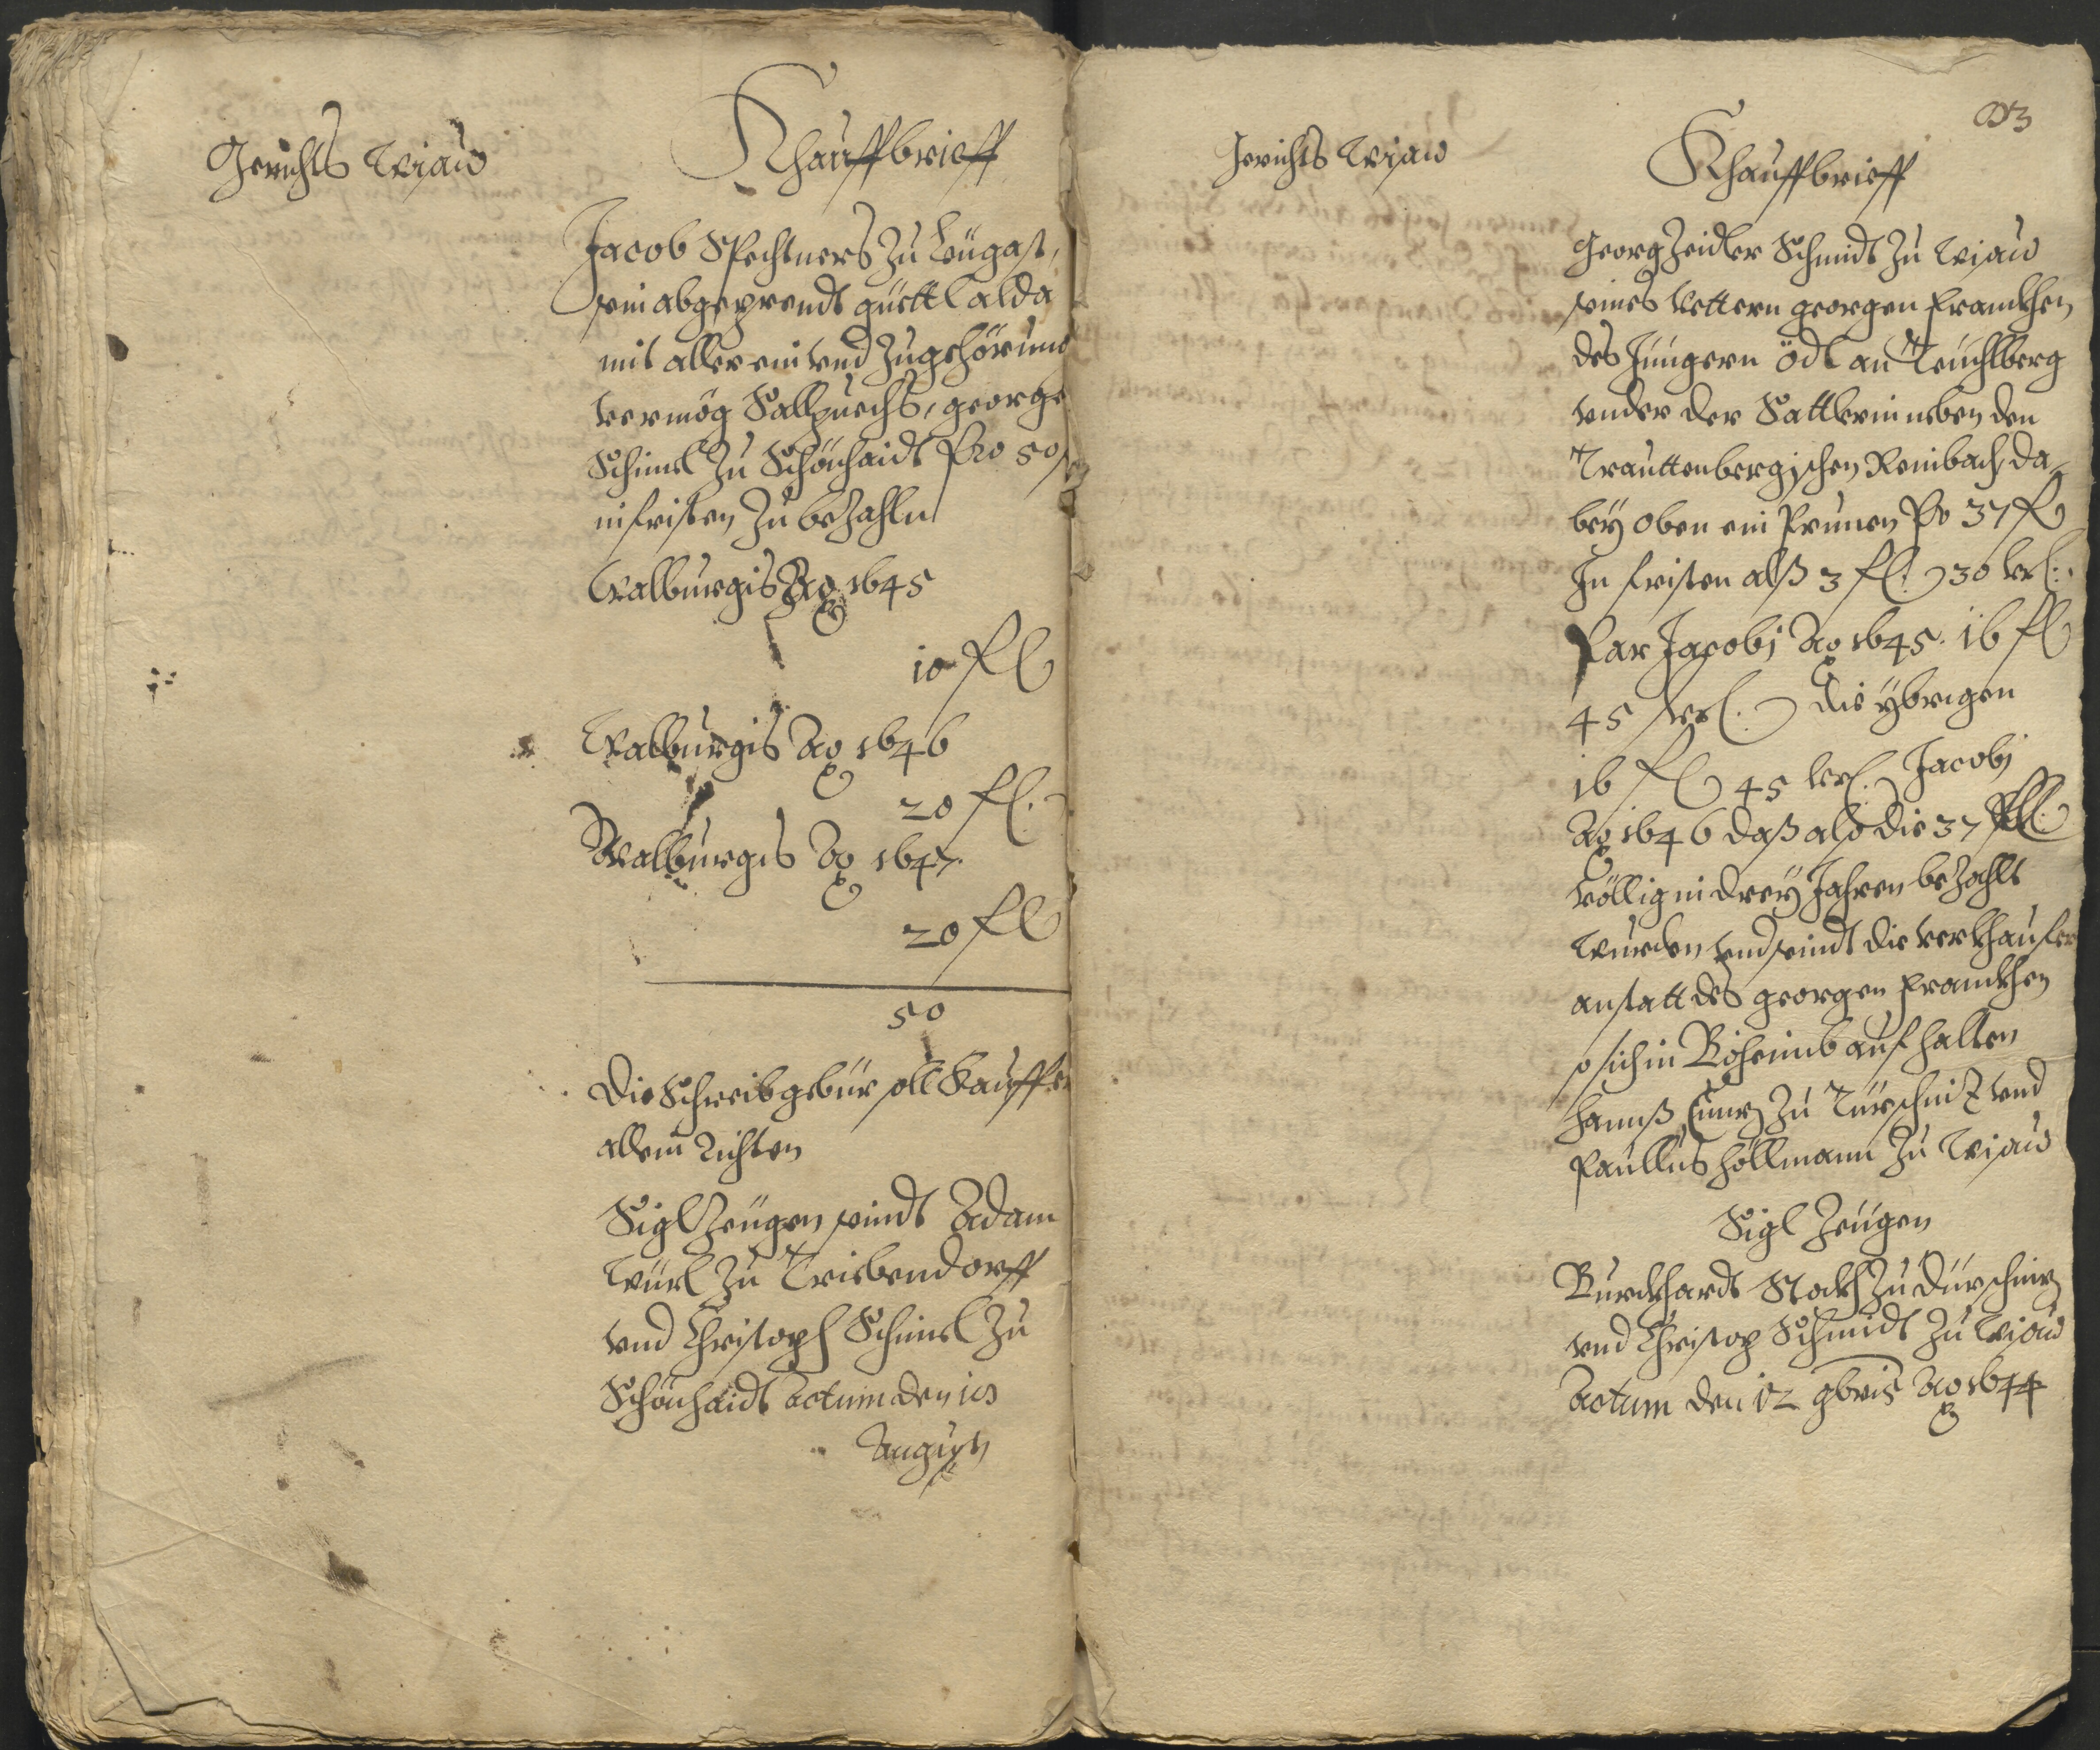 Gerichts Wisaw
Khauffbrieff
Jacob Spechtners Zu Leügast,
sein abgeprendt güettl alda
mit aller ein vnd Zugehörung
vermög Sallpuechs, george
Schimel Zu Schönhaidt Pro 50 f
in fristen Zu beZahln
Walburgis Ao 1645
10 fl
Walburgis Ao 1646
20 fl.
Walburgis Ao 1647.
20 fl
50
Die Schreibgebür soll Kauffer
allein Richten
Sigl Zeügen seindt Adam
Würl Zu Triebendorff
vnd Christoph Schimel Zu
Schönhaidt actum den
Augusti
Gerichts Wisaw
Khauffbrieff
Georg Zeidler Schmidt Zu Wisaw
seines Vettern georgen Franckhen
des Jüngern ödt an Teüchlberg
vnder der Sattlerin neben den
Trauttenbergischen Reinbach, da
bey oben ein Prunnen Po 37 fl
In fristen alß 3 fl. 30 kr.
Par Jacobj Ao 1645. 16 fl
45 kr. die ybrigen
16 fl 45 kr. Jacobj
Ao 1646 daß also die 37 fl
völlig in drey Jahren beZahlt
wurden vnd seindt die verkhaufer
anstatt des georgen Franckhen
so sich in Böheimb aufhalten
Hannß Zu Türschnitz vnd
Paullus Höllmann Zu Wisaw
Sigl Zeügen
Burckhardt Stockh Zu Dürschniz
vnd Christop Schmidt Zu Wisaw
Actum den 12 9bris Ao 1644